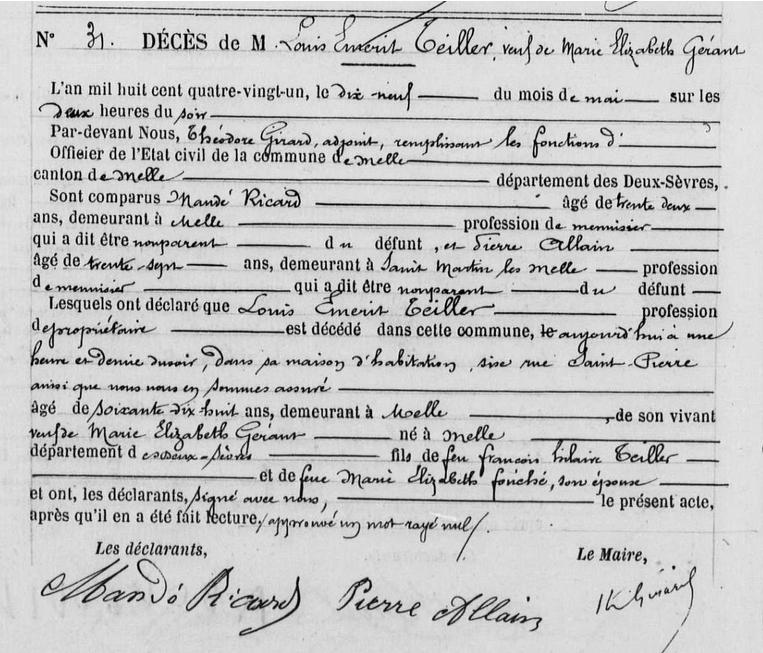 N° 31. DÉCÈS de M. Louis Emerit Teiller, veuf de Marie Elizabeth Gérant
L'an mil huit cent quatre-vingt-un, le dix neuf du mois de mai sur les
deux heures du soir
Par-devant Nous, Théodore Girard, adjoint, remplissant les fonctions d'
Officier de l'Etat civil de la commune de Melle
canton de Melle département des Deux-Sèvres,
Sont comparus Mandé Ricard âgé de trente deux
ans, demeurant à Melle profession de mennisier
qui a dit être nonparent du défunt, et Pierre Allain
âgé de trente-sept ans, demeurant à Saint Martin les Melle profession
de mennisier qui a dit être nonparent du défunt
Lesquels ont déclaré que Louis Emerit Teiller profession
de propriétaire est décédé dans cette commune, le aujourd'hui à une
heure et demie du soir, dans sa maison d'habitation, sise rue Saint-Pierre
ainsi que nous nous en sommes assuré
âgé de soixante dix huit ans, demeurant à Melle, de son vivant
veuf de Marie Elizabeth Gérant né à Melle
département des Deux-Sèvres fils de feu françois hilaire Teiller
et de feue Marie Elizabeth fouché, son épouse
et ont, les déclarants, signé avec nous, le présent acte,
après qu'il en a été fait lecture, / approuvé un mot rayé nul /.
Les déclarants, Le Maire,
Mandé Ricard Pierre Allain Girard